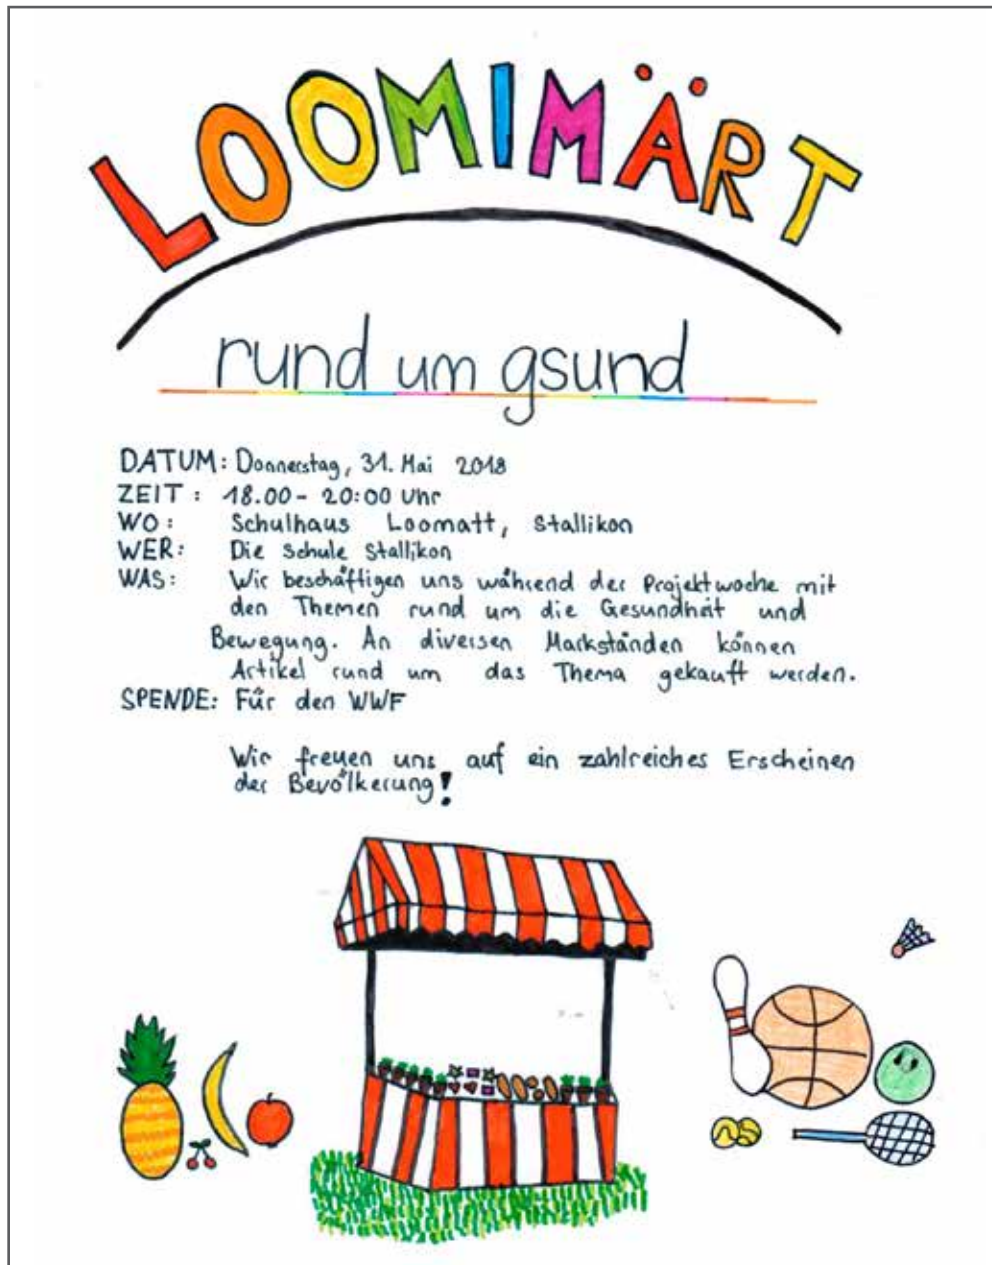 LOOMIMÄRT
rund um gsund
DATUM: Donnerstag, 31. Mai 2018
ZEIT: 18.00 - 20:00 Uhr
WO: Schulhaus Loomatt, Stallikon
WER: Die Schule Stallikon
WAS: Wir beschäftigen uns während der Projektwoche mit
den Themen rund um die Gesundheit und
Bewegung. An diversen Markständen können
Artikel rund um das Thema gekauft werden.
SPENDE: Für den WWF
Wir freuen uns auf ein zahlreiches Erscheinen
der Bevölkerung!